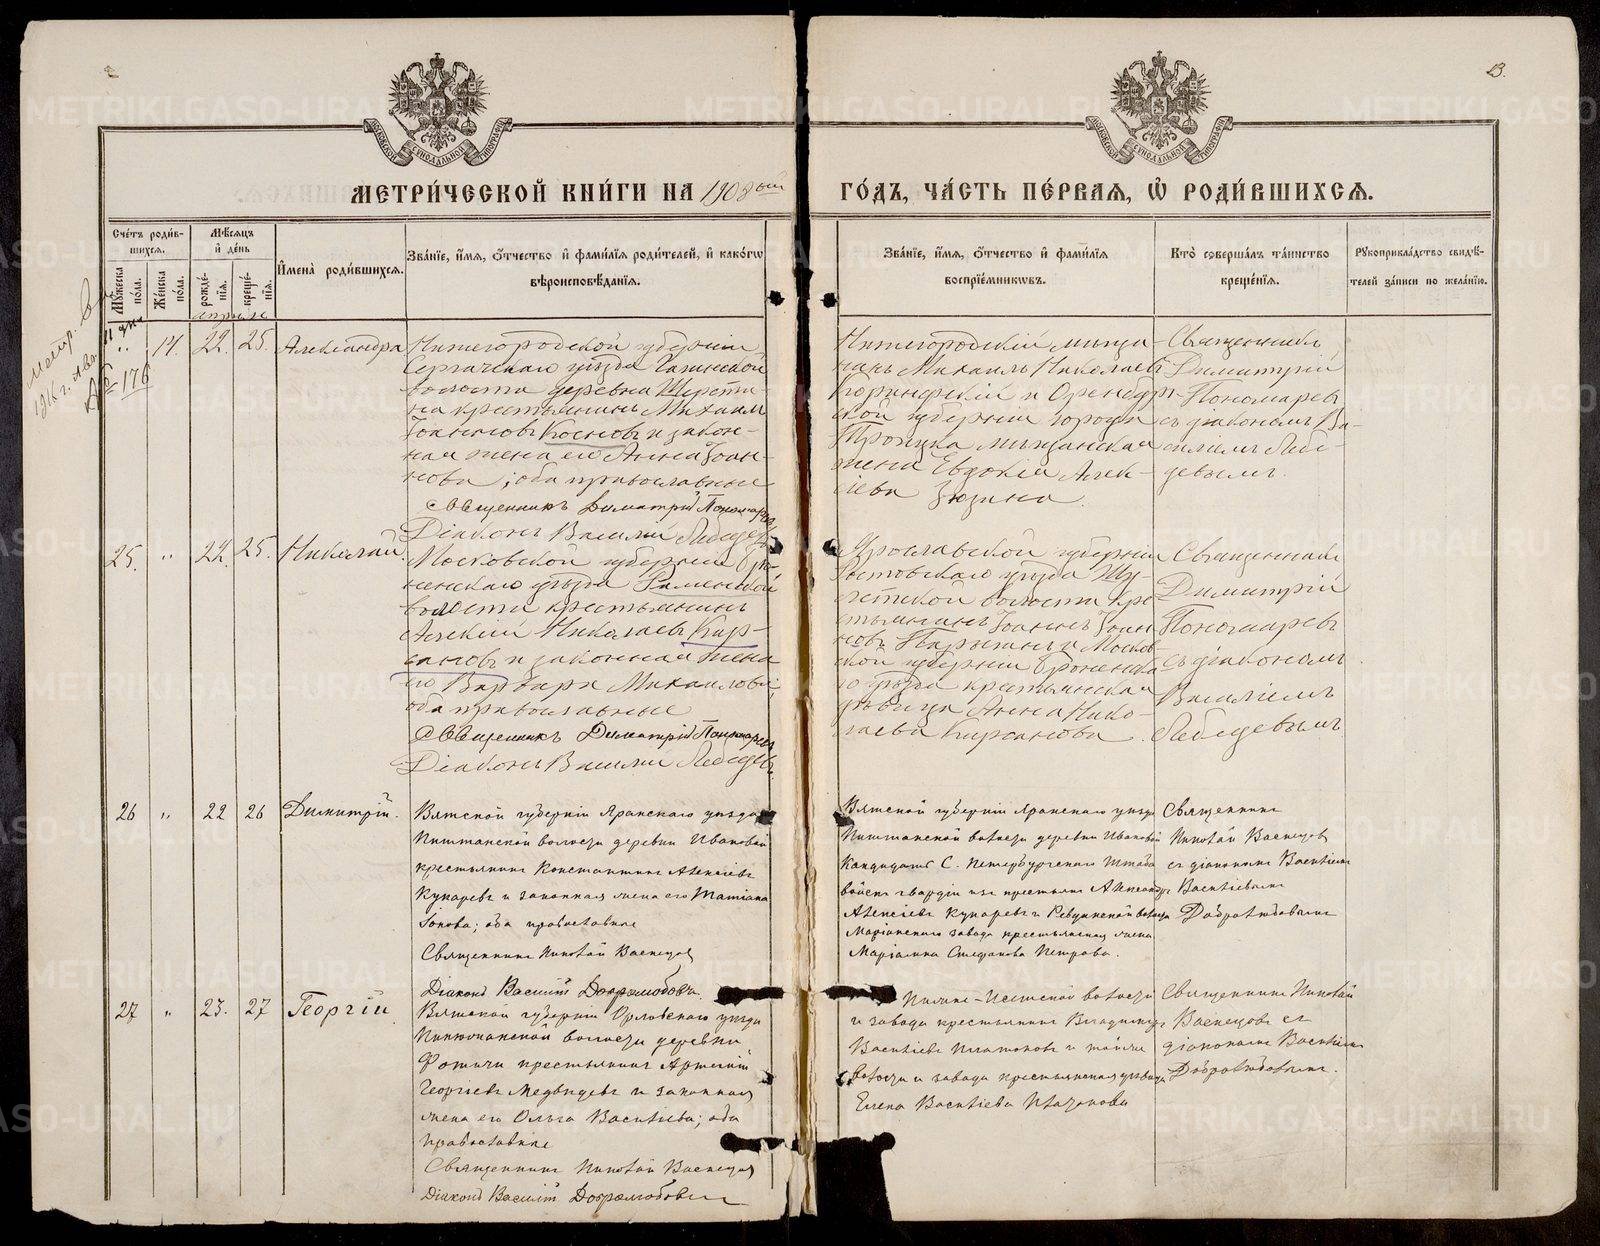 METRIKI.GASO-URAL.RU
13.
МОСКОВСКОЙ СѴНОДАЛЬНОЙ ТИПОГРАФІИ
МЕТРИ́ЧЕСКОЙ КНИ́ГИ НА 1908 ой
ГО́ДЪ, ЧА́СТЬ ПЕ́РВАЯ, Ѽ РОДИ́ВШИХСЯ.
Сче́тъ роди́в-
шихся.
Мѣ́сяцъ
и҆ де́нь
Мꙋ́жеска
по́ла.
Же́нска
по́ла.
рожде́-
нїя.
креще́-
нїя.
И҆мена̀ роди́вшихся.
Зва́нїе, и҆́мя, ѻ҆́тчество и҆ фами́лїя роди́телей, и҆ како́гѡ
вѣроисповѣ́данїя.
Зва́нїе, и҆́мя, ѻ҆́тчество и҆ фами́лїя
воспрїе́мникѡвъ.
Кто̀ соверша́лъ та́инство
креще́нїя.
Рꙋкоприкла́дство свидѣ́-
телей за́писи по жела́нію.
апрѣль
метр.
1916 г.
№ 176
„ 14. 22. 25. Александра
Нижегородской губерніи
Сергачскаго уѣзда
волости деревни
крестьянинъ Михаилъ
Іоанновъ Косновъ и закон-
ная жена его Анна Іоан-
нова; оба православные
Священникъ Димитрій Пономаревъ
Діаконъ Василій Лебедевъ
Нижегородскій мѣща-
нинъ Михаилъ Николаевъ
и Оренбург-
ской губерніи города
Троицка мѣщанская
жена Евдокія Алек-
сіева Зюзина.
Священникъ
Димитрій
Пономаревъ
съ діакономъ Ва-
силіемъ Лебе-
девымъ.
25. „ 22. 25. Николай.
Московской губерніи Бро-
ницкаго уѣзда Раменской
волости крестьянинъ
Алексій Николаевъ Кир-
сановъ и законная жена
его Варвара Михаилова;
оба православные
Священникъ Димитрій Пономаревъ
Діаконъ Василій Лебедевъ.
Ярославской губерніи
Ростовскаго уѣзда
волости кре-
стьянинъ Іоаннъ Іоан-
новъ и Москов-
ской губерніи Бронницка-
го уѣзда крестьянская
дѣвица Анна Нико-
лаева Кирсанова.
Священникъ
Димитрій
Пономаревъ
съ діакономъ
Василіемъ
Лебедевымъ
26 „ 22 26 Димитрій.
Вятской губерніи Яранскаго уѣзда
Пиштанской волости деревни Ивановой
крестьянинъ Константинъ Алексіевъ
Кукаревъ и законная жена его Татіана
Іонова; оба православные
Священникъ Николай Васнецовъ
Діаконъ Василій Добролюбовъ.
Вятской губерніи Яранскаго уѣзда
Пиштанской волости деревни Ивановой
Кандидатъ С. Петербургскаго Штаба
войскъ гвардіи изъ крестьянъ Александръ
Алексіевъ Кукаревъ и Ревдинской волости
Маріинскаго завода крестьянская жена
Маріамна Стефанова Петрова.
Священникъ
Николай Васнецовъ
съ діакономъ Василіемъ
Васильевымъ
Добролюбовымъ
27 „ 23. 27 Георгій.
Вятской губерніи Орловскаго уѣзда
волости деревни
крестьянинъ Артемій
Георгіевъ Медвѣдевъ и законная
жена его Ольга Васильева; оба
православные
Священникъ Николай Васнецовъ
Діаконъ Василій Добролюбовъ
Нязе-Петровской волости
и завода крестьянинъ Владимиръ
Васильевъ Платоновъ и той же
волости и завода крестьянская дѣвица
Елена Васильева
Священникъ Николай
Васнецовъ съ
діакономъ Василіемъ
Добролюбовымъ.